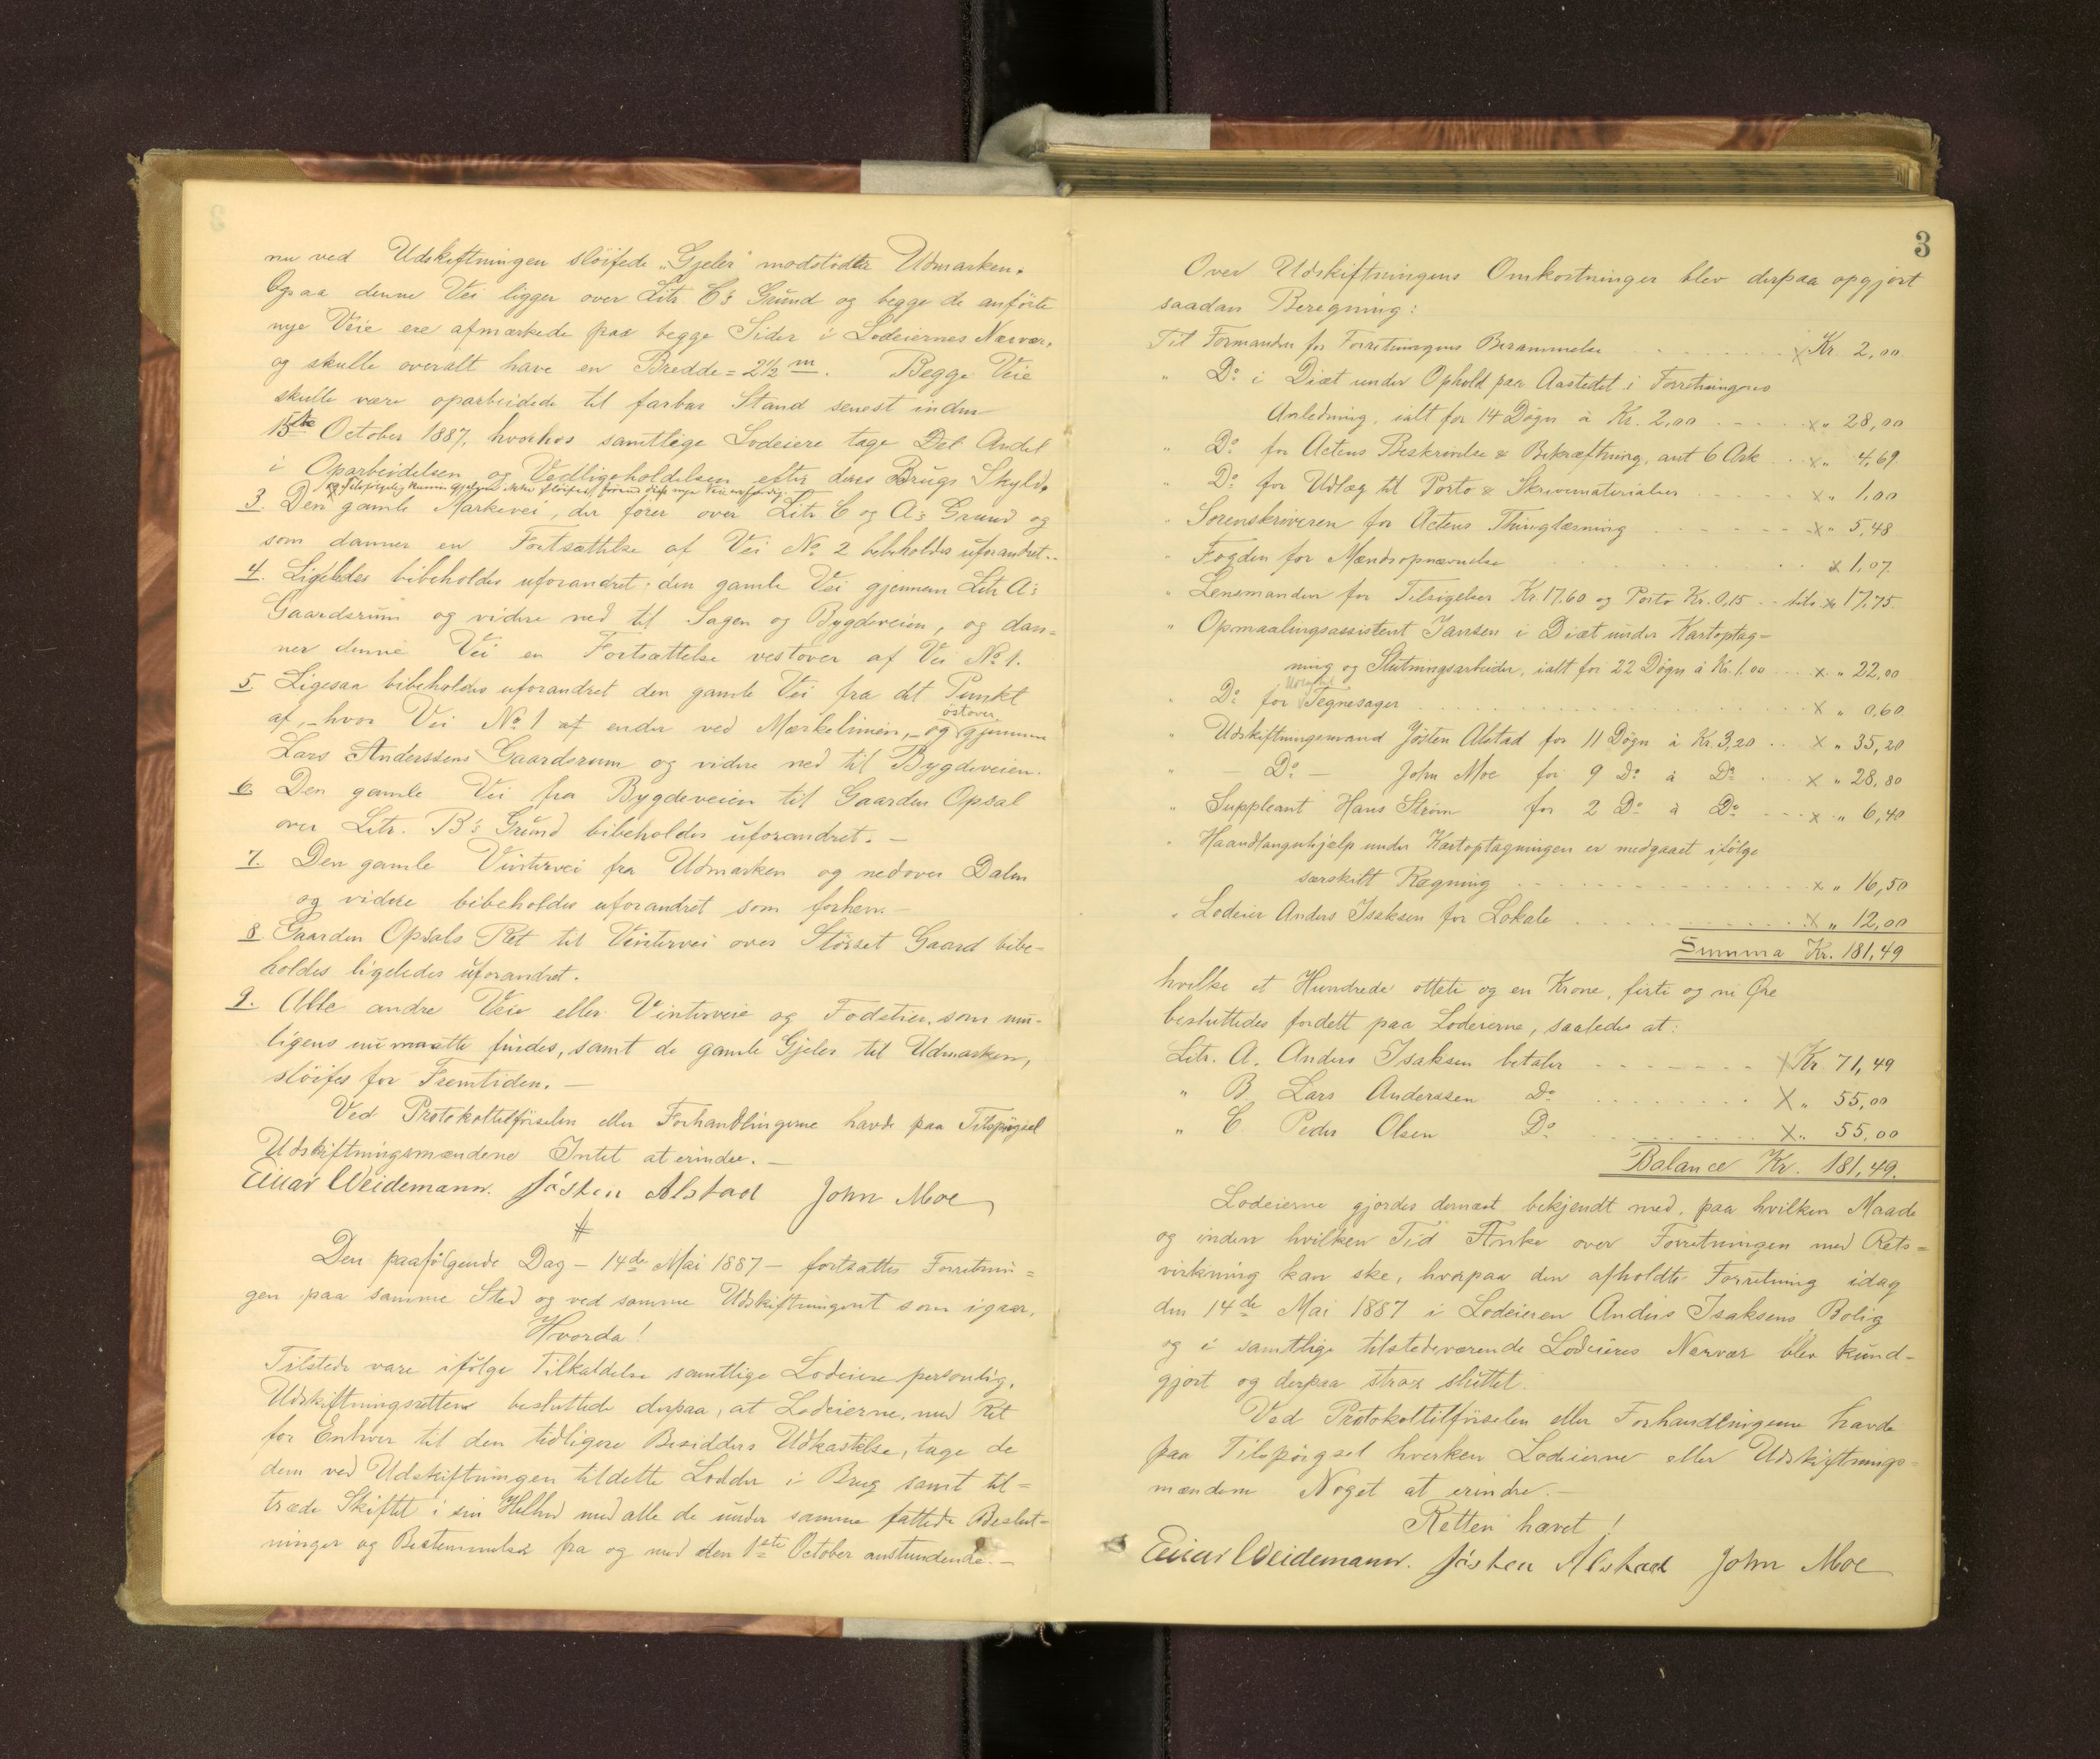 nu ved Udskiftningen sløifede „Gjeler" modstødte Udmarken.
Ogsaa denne Vei ligger over Litr C's Grund og begge de anførte
nye Veie ere afmærkede paa begge Sider i Lodeiernes Nærvær,
og skulle overalt have en Bredde = 2½ m. Begge Veie
skulle være oparbeidede til farbar Stand senest inden
15de October 1887, hvorhos samtlige Lodeiere tage Del Andel
i Oparbeidelsen og Vedligeholdelsen efter deres Brugs Skyld,
3. Den gamle Markevei, der fører over Litr. C og A's Grund og
som danner en Fortsættelse af Vei No 2 bebeholdes uforandret.
4. Ligeledes bibeholdes uforandret den gamle Vei gjennem Litr A's
Gaardsrum og videre ned til Sagen og Bygdeveien, og dan=
ner denne Vei en Fortsættelse vestover af Vei No 1.
5 Ligesaa bibeholdes uforandret den gamle Vei fra det Punkt
østover
af, – hvor Vei No 1 af ender ved Mærkelinien, – og gjennem
Lars Anderssens Gaardsrum og videre ned til Bygdeveien.
6 Den gamle Vei fra Bygdeveien til Gaarden Opsal
over Litr. B's Grund bibeholdes uforandret. –
7. Den gamle Vintervei fra Udmarken og nedover Dalen
og videre bibeholdes uforandret som forhen. –
8 Gaarden Opsals Ret til Vintervei over Størset Gaard bibe-
holdes ligeledes uforandret.
9. Alle andre Veie eller Vinterveie og Fodstier, som mu-
ligens nu maatte findes, samt de gamle Gjeler til Udmarken,
sløifes for Fremtiden. –
Ved Protokoltilførselen eller Forhandlingerne havde paa Tilspørgsel
Udskiftningsmændene Intet at erindre. –
Einar Weidemann. Jøsten Alstad John Moe
#
Den paafølgende Dag – 14de Mai 1887 – fortsattes Forretnin=
gen paa samme Sted og ved samme Udskiftningsret som igaar.
Hvorda!
Tilstede vare ifølge Tilkaldelse samtlige Lodeiere personlig.
Udskiftningsretten besluttede derpaa, at Lodeierne, med Ret
for Enhver til den tidligere Besidders Udkastelse, tage de
dem ved Udskiftningen tildelte Lodder i Brug samt til=
træde Skiftet i sin Helhed med alle de under samme fattede Beslut=
ninger og Bestemmelser fra og med den 1ste October anstundende. –
3
Over Udskiftningens Omkostninger blev derpaa opgjort
saadan Beregning:
Til Formanden for Forretningens Berammelse x Kr. 2,00.
" Do i Diæt under Ophold paa Aastedet i Forretningens
Anledning, ialt for 14 Døgn à Kr. 2,00 x " 28,00
" Do for Actens Beskrivelse & Bekræftning, ant 6 Ark x " 4,69
" Do for Udlæg til Porto & Skrivematerialier x " 1,00
" Sorenskriveren for Actens Thinglæsning x " 5,48
" Fogden for Mændsopnævnelse x 1,07.
" Lensmanden for Tilsigelser Kr. 17,60 og Porto Kr. 0,15 tils. x 17,75
" Opmaalingsassistent Jansen i Diæt under Kartoptag=
ning og Slutningsarbeider, ialt for 22 Døgn à Kr. 1,00 x " 22,00
Udlæg til
" Do for Tegnesager x " 0,60
" Udskiftningsmand Jøsten Alstad for 11 Døgn à Kr. 3,20 x " 35,20
" – Do – John Moe for 9 Do à Do x " 28,80
" Suppleant Hans Strøm for 2 Do à Do x " 6,40
" Haandlangerhjælp under Kartoptagningen er medgaaet ifølge
særskilt Regning x " 16,50
" Lodeier Anders Isaksen for Lokale x " 12,00
Summa Kr. 181,49
hvilke et Hundrede otteti og en Krone, firti og ni Øre
besluttedes fordelt paa Lodeierne, saaledes at:
Litr. A. Anders Isaksen betaler x Kr. 71,49
" B Lars Anderssen Do x " 55,00
" C Peder Olsen Do x " 55,00
Balance Kr. 181,49.
Lodeierne gjordes dernæst bekjendt med, paa hvilken Maade
og inden hvilken Tid Anke over Forretningen med Rets=
virkning kan ske, hvorpaa den afholdte Forretning idag
den 14de Mai 1887 i Lodeieren Anders Isaksens Bolig
og i samtlige tilstedeværende Lodeieres Nærvær blev kund-
gjort og derpaa strax sluttet.
Ved Protokoltilførselen eller Forhandlingerne havde
paa Tilspørgsel hverken Lodeierne eller Udskiftnings=
mændene Noget at erindre. –
Retten hævet!
Einar Weidemann. Jøsten Alstad John Moe